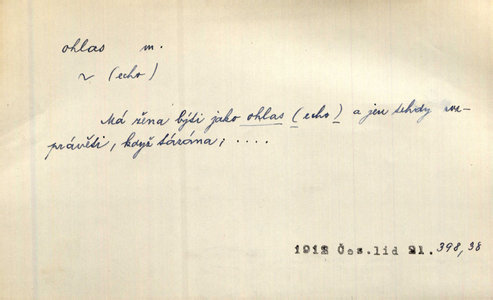 ohlas m.
~ (echo)
Má žena býti jako ohlas (echo) a jen tehdy roz-
právěti, když tázána; ....
1912 Čes.lid 21. 398,38